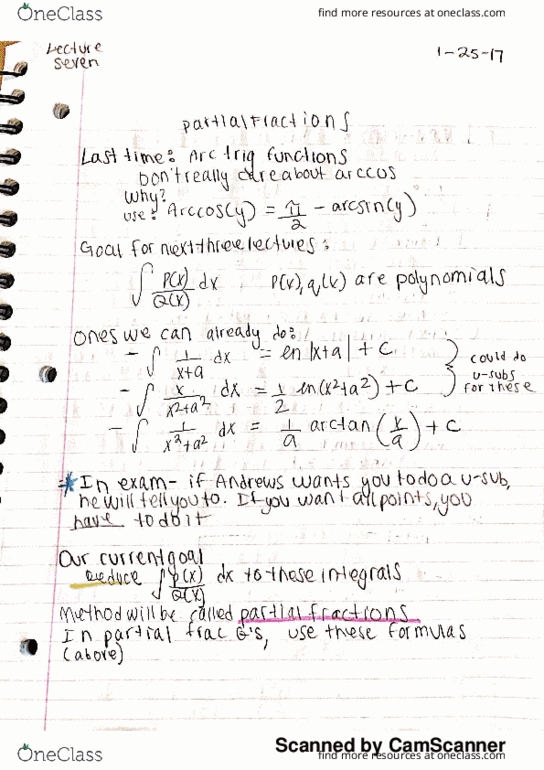 OneClass
find more resources at oneclass.com
Lecture seven
1-25-17
partial fractions
Last time: Arc trig functions
Don't really care about arccos
Why?
use: Arccos(y) = π/2 - arcsin(y)
Goal for next three lectures:
∫ P(x)/Q(x) dx P(x), q(x) are polynomials
Ones we can already do:
- ∫ 1/(x+a) dx = ln |x+a| + C
- ∫ x/(x²+a²) dx = 1/2 ln(x²+a²) + C
- ∫ 1/(x²+a²) dx = 1/a arctan(x/a) + C
could do
u-subs
for these
* In exam - if Andrews wants you to do a u-sub,
he will tell you to. If you want all points, you
have to do it
Our current goal
reduce ∫ p(x)/Q(x) dx to these integrals
Method will be called partial fractions
In partial frac Q's, use these formulas
(above)
Scanned by CamScanner
OneClass
find more resources at oneclass.com